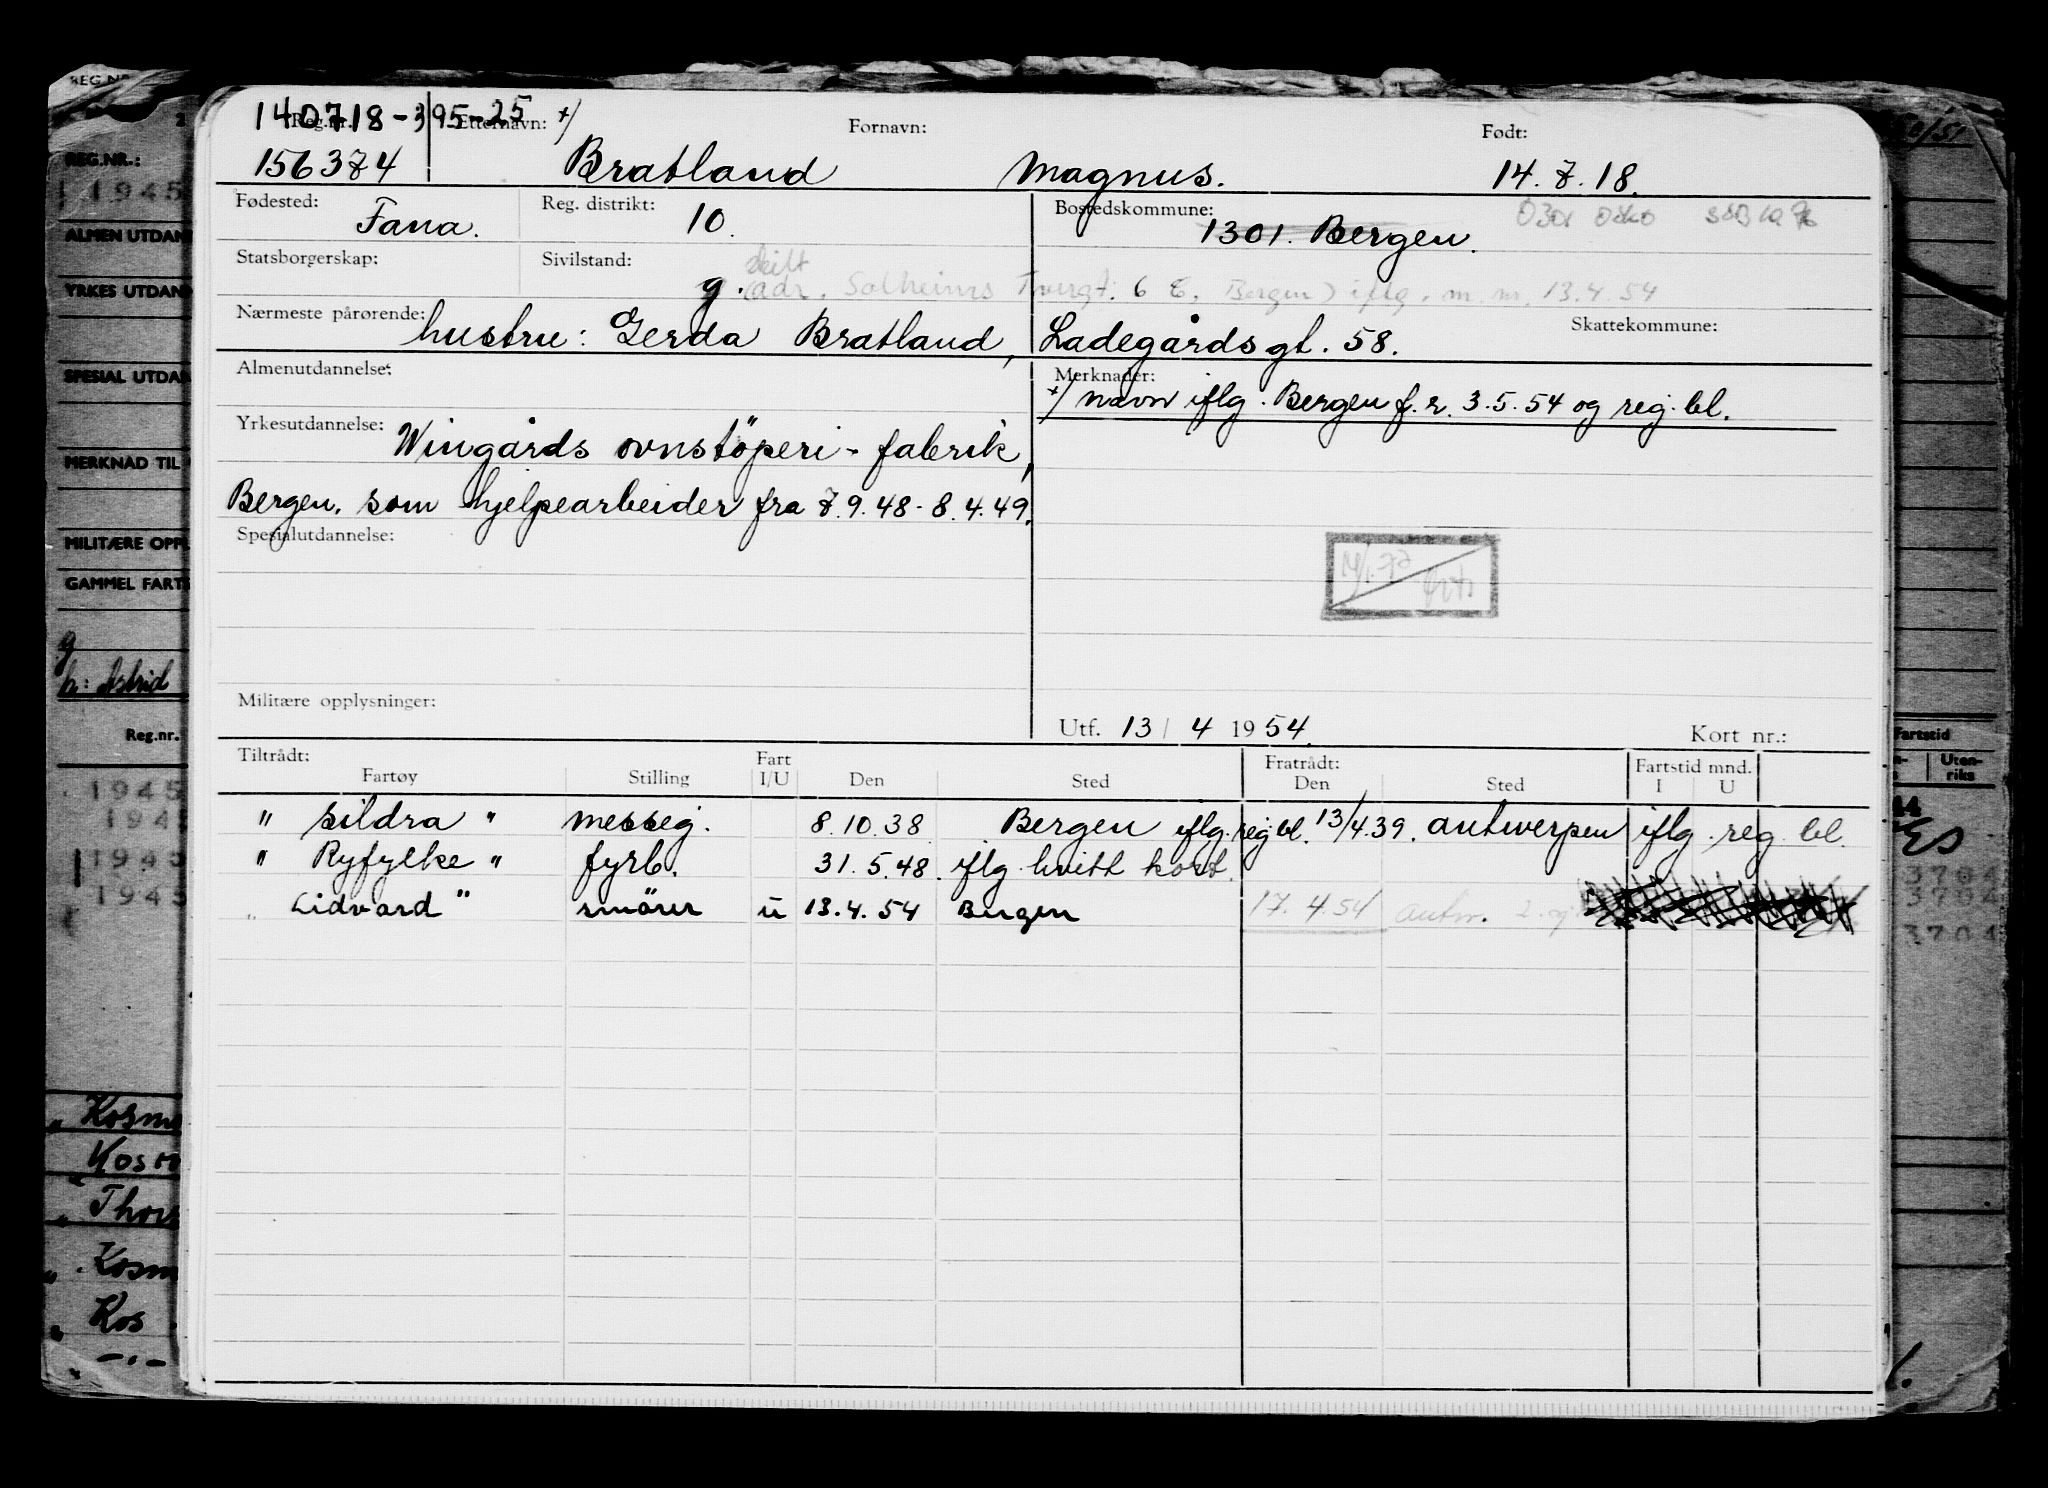 140718-395-25 x/
Reg.nr. Etternavn: Fornavn: Født:
156374 Bratland Magnus. 14.7.18.
Fødested: Fana. Reg. distrikt: 10. Bostedskommune: 1301. Bergen.
Statsborgerskap: Sivilstand: g. skilt
(adr. Solheims Tvergt. 6 E, Bergen) iflg. m. nr. 13.4.54
Nærmeste pårørende: hustru: Gerda Bratland, Ladegårdsgt. 58. Skattekommune:
Almenutdannelse: Merknader:
x/ navn iflg. Bergen f.r. 3.5.54 og reg. bl.
Yrkesutdannelse: Wingårds ovnstöperi- fabrik,
Bergen. som hjelpearbeider fra 7.9.48-8.4.49.
Spesialutdannelse:
Militære opplysninger:
Utf. 13/4 1954. Kort nr.:
Tiltrådt: Fart Fratrådt: Fartstid mnd.
Fartøy Stilling I/U Den Sted Den Sted I U
" Sildra " messeg. 8.10.38 Bergen iflg. reg bl. 13/4.39. Antwerpen iflg. reg. bl.
" Ryfylke " fyrb. 31.5.48. iflg hvitt kort.
" Lidvard " smörer u 13.4.54 Bergen 17.4.54 Antw.
REG.NR.:
1945
ALMEN UTDAN
YRKES UTDAN
SPESIAL UTDAN
MERKNAD TIL
MILITÆRE OPPL
GAMMEL FARTS
g
h: Astrid
Reg.nr.
1945
194
1945
1945
" Kosm
Kosm
" Thors
" Kosm
" Kos
Fartstid
Uten-
riks
3704
3704
3704